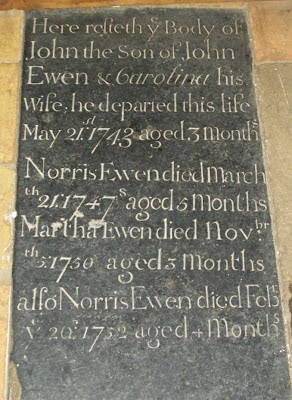 Here resteth yͤ Body of
John the Son of John
Ewen & Carolina his
wife; he departed this life
May 21ˢᵗ 1743 aged 3 Monthˢ
Norris Ewen died March
ᵗʰ 21 1747/8 aged 5 Months
Martha Ewen died Novᵇʳ
ᵗʰ 5 1750 aged 3 Months
also Norris Ewen died Febʳʸ
yͤ 20ᵗʰ 1752 aged 4 Monthˢ